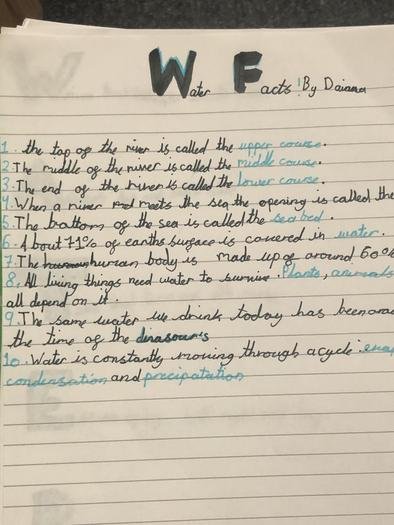 Water Facts! By Daiana
1. the top of the river is called the upper course.
2 The middle of the river is called the middle course.
3. The end of the river is called the lower course.
4. When a river meets the sea the opening is called the
5. The bottom of the sea is called the sea bed.
6. About 71% of earths surface is covered in water.
7. The human body is made up of around 60%
8. All living things need water to survive. Plants, animals
all depend on it.
9. The same water we drink today has been
the time of the dinasours
10. Water is constantly moving through a cycle:
condensation and precipatation